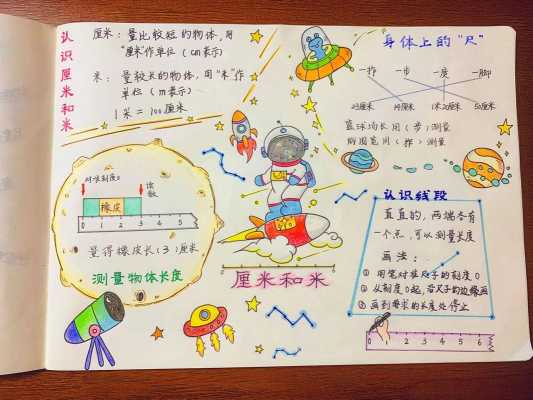 认识厘米和米
厘米：量比较短的物体，用
"厘米"作单位（cm表示）
米：量较长的物体，用"米"作
单位（m表示）
1米＝100厘米
身体上的"尺"
一拃 一步 一庹 一脚
厘米 厘米 1米20厘米 50厘米
篮球场长用（步）测量
用（拃）测量
对准刻度0
读数
橡皮
0 1 2 3 4 5
量得橡皮长（3）厘米
测量物体长度
厘米和米
认识线段
直直的，两端各有
一个点，可以测量长度
画法：
① 用笔对准尺子的刻度0
② 从刻度0起，沿尺子的边缘画
③ 画到要求的长度处停止
0 1 2 3 4 5 6